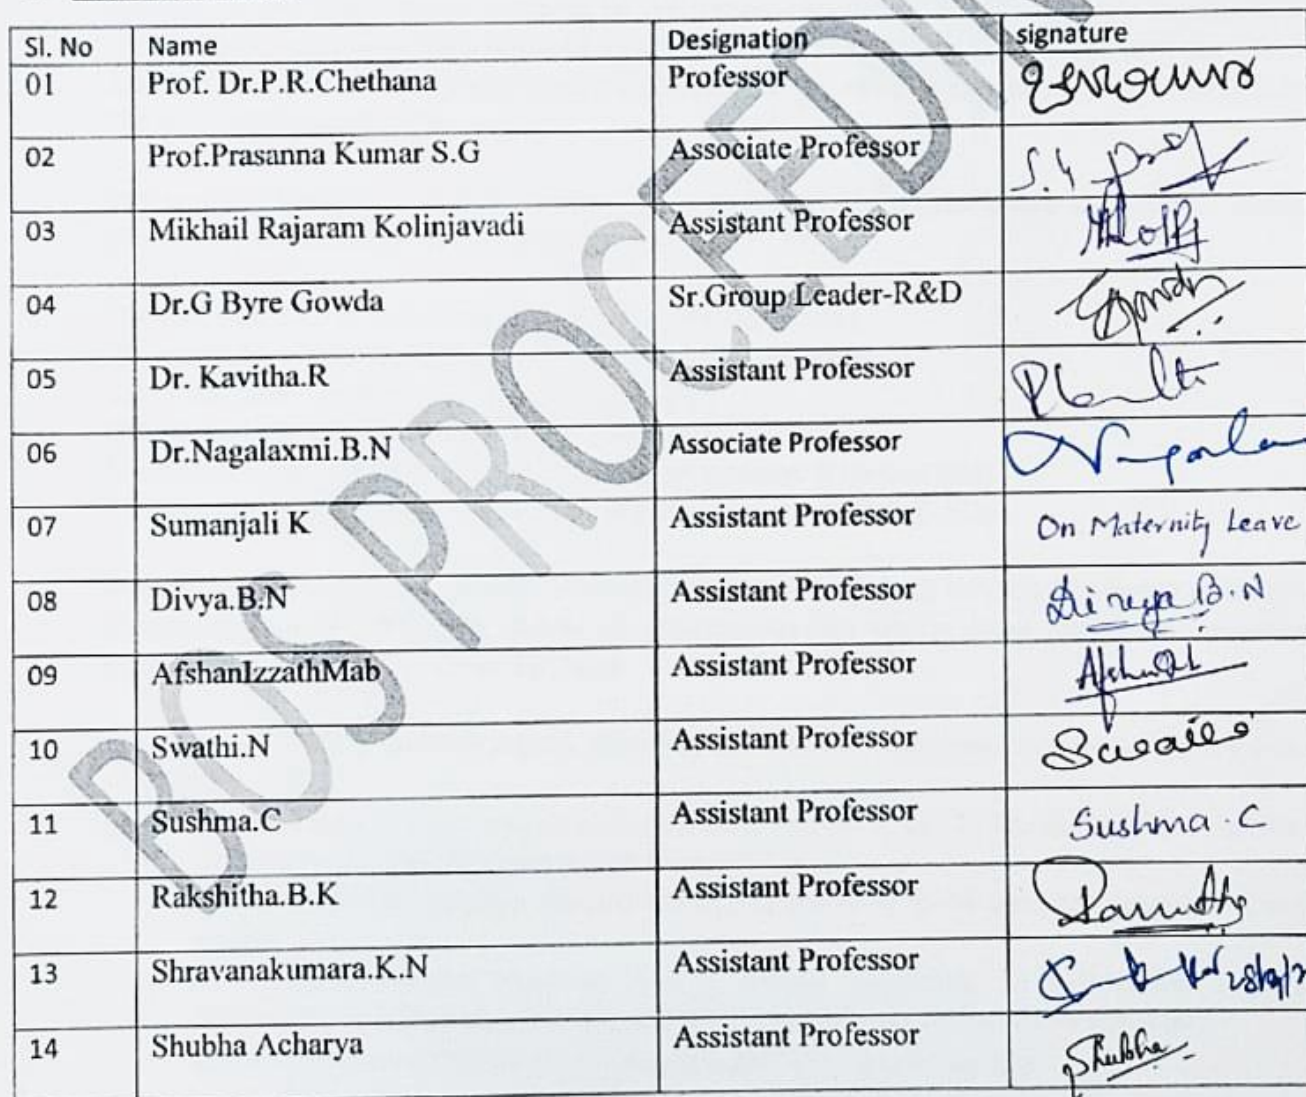 Sl. No Name Designation signature
01 Prof. Dr.P.R.Chethana Professor
02 Prof.Prasanna Kumar S.G Associate Professor
03 Mikhail Rajaram Kolinjavadi Assistant Professor
04 Dr.G Byre Gowda Sr.Group Leader-R&D
05 Dr. Kavitha.R Assistant Professor
06 Dr.Nagalaxmi.B.N Associate Professor
07 Sumanjali K Assistant Professor On Maternity Leave
08 Divya.B.N Assistant Professor Divya B.N
09 AfshanIzzathMab Assistant Professor
10 Swathi.N Assistant Professor
11 Sushma.C Assistant Professor Sushma. C
12 Rakshitha.B.K Assistant Professor
13 Shravanakumara.K.N Assistant Professor
14 Shubha Acharya Assistant Professor Shubha
BOS PROCEEDIN